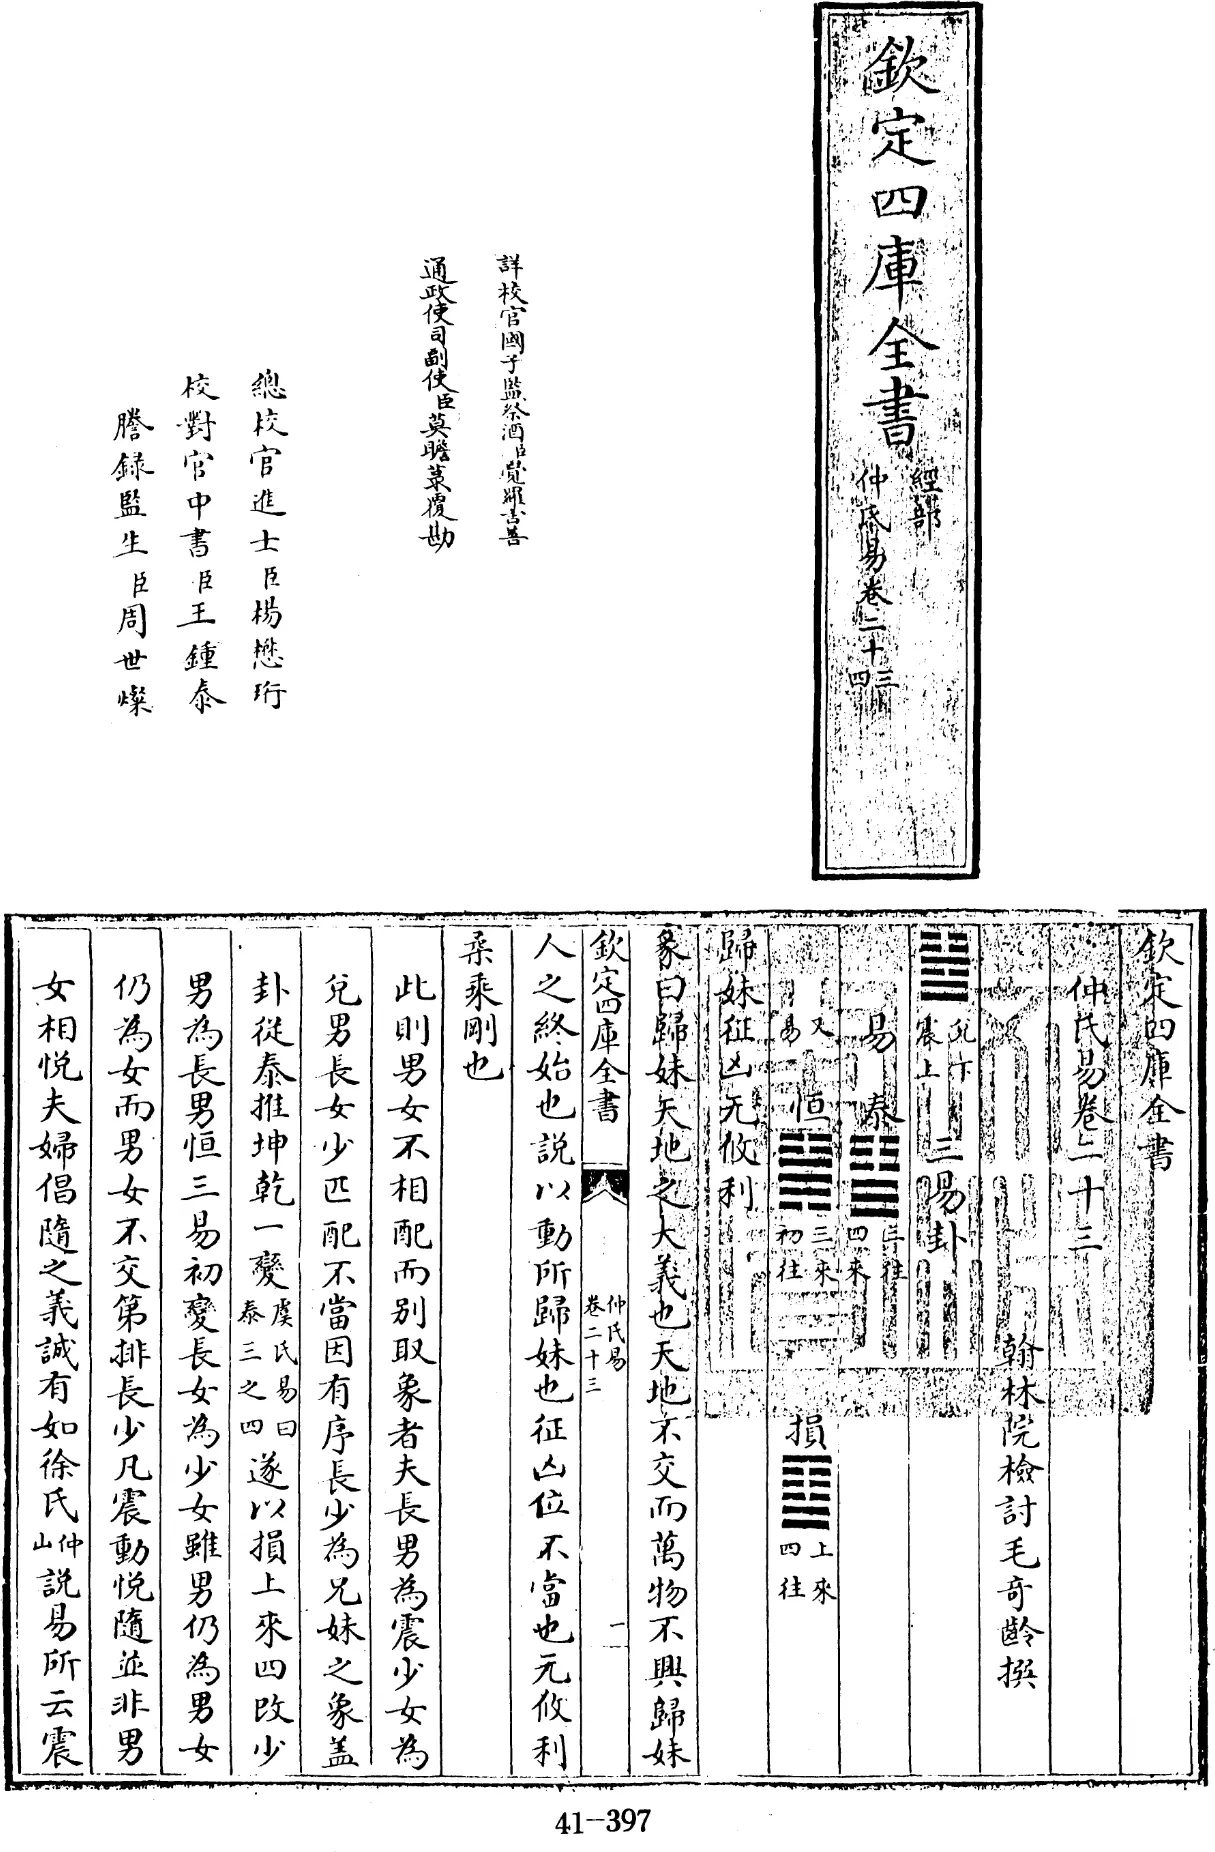 欽定四庫全書
經部
仲氏易卷二十三四
詳校官國子監祭酒臣覺羅吉善
通政使司副使臣莫瞻菉覆勘
總校官進士臣楊懋珩
校對官中書臣王鍾泰
謄錄監生臣周世燦
欽定四庫全書
仲氏易卷二十三
翰林院檢討毛奇齡撰
兌下震上 三易卦
易 泰 三往四來
又易 恒 三來初往 損 上來四往
歸妹征凶无攸利
彖曰歸妹天地之大義也天地不交而萬物不興歸妹
欽定四庫全書 仲氏易卷二十三 一
人之終始也說以動所歸妹也征凶位不當也无攸利
柔乘剛也
此則男女不相配而别取象者夫長男為震少女為
兌男長女少匹配不當因有序長少為兄妹之象蓋
卦從泰推坤乾一變虞氏易曰泰三之四遂以損上來四改少
男為長男恒三易初變長女為少女雖男仍為男女
仍為女而男女不交第排長少凡震動悅隨並非男
女相悅夫婦倡隨之義誠有如徐氏仲山說易所云震
41--397